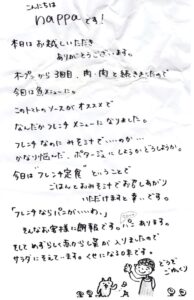 こんにちは
nappaです!
本日はお越しいただき
ありがとうございます。
オープンから3日目、肉・肉と続きましたので
今日は魚メニューに。
このトマトのソースがオススメで
なんだかフレンチメニューになりました。
フレンチなのにみそ汁で・・・のか・・・
かなり悩んだ、ポタージュにしようかどうしようか。
"今日はフレンチ定食"ということで
ごはんとおみそ汁でお召しあがり
いただけますと幸いです。
「フレンチならパンがいいわ。」
そんなお客様に朗報です。パンあります。
そしてめずらしく赤からし菜が入りましたので
サラダにそえてます。くせになる日本です。
どうぞ
ごゆっくり